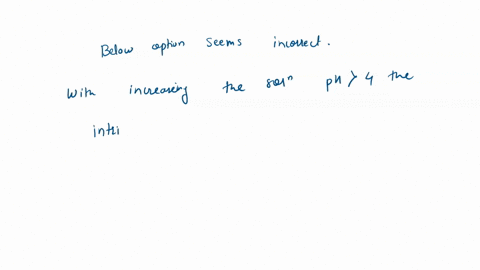 Below option seems incorrect.
With increasing the solⁿ pH > 4 the
intri